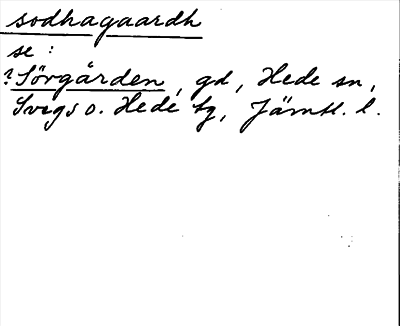 sodhagaardh
se :
? Sörgården, gd, Hede sn,
Svegs o. Hede tg, Jämtl. l.